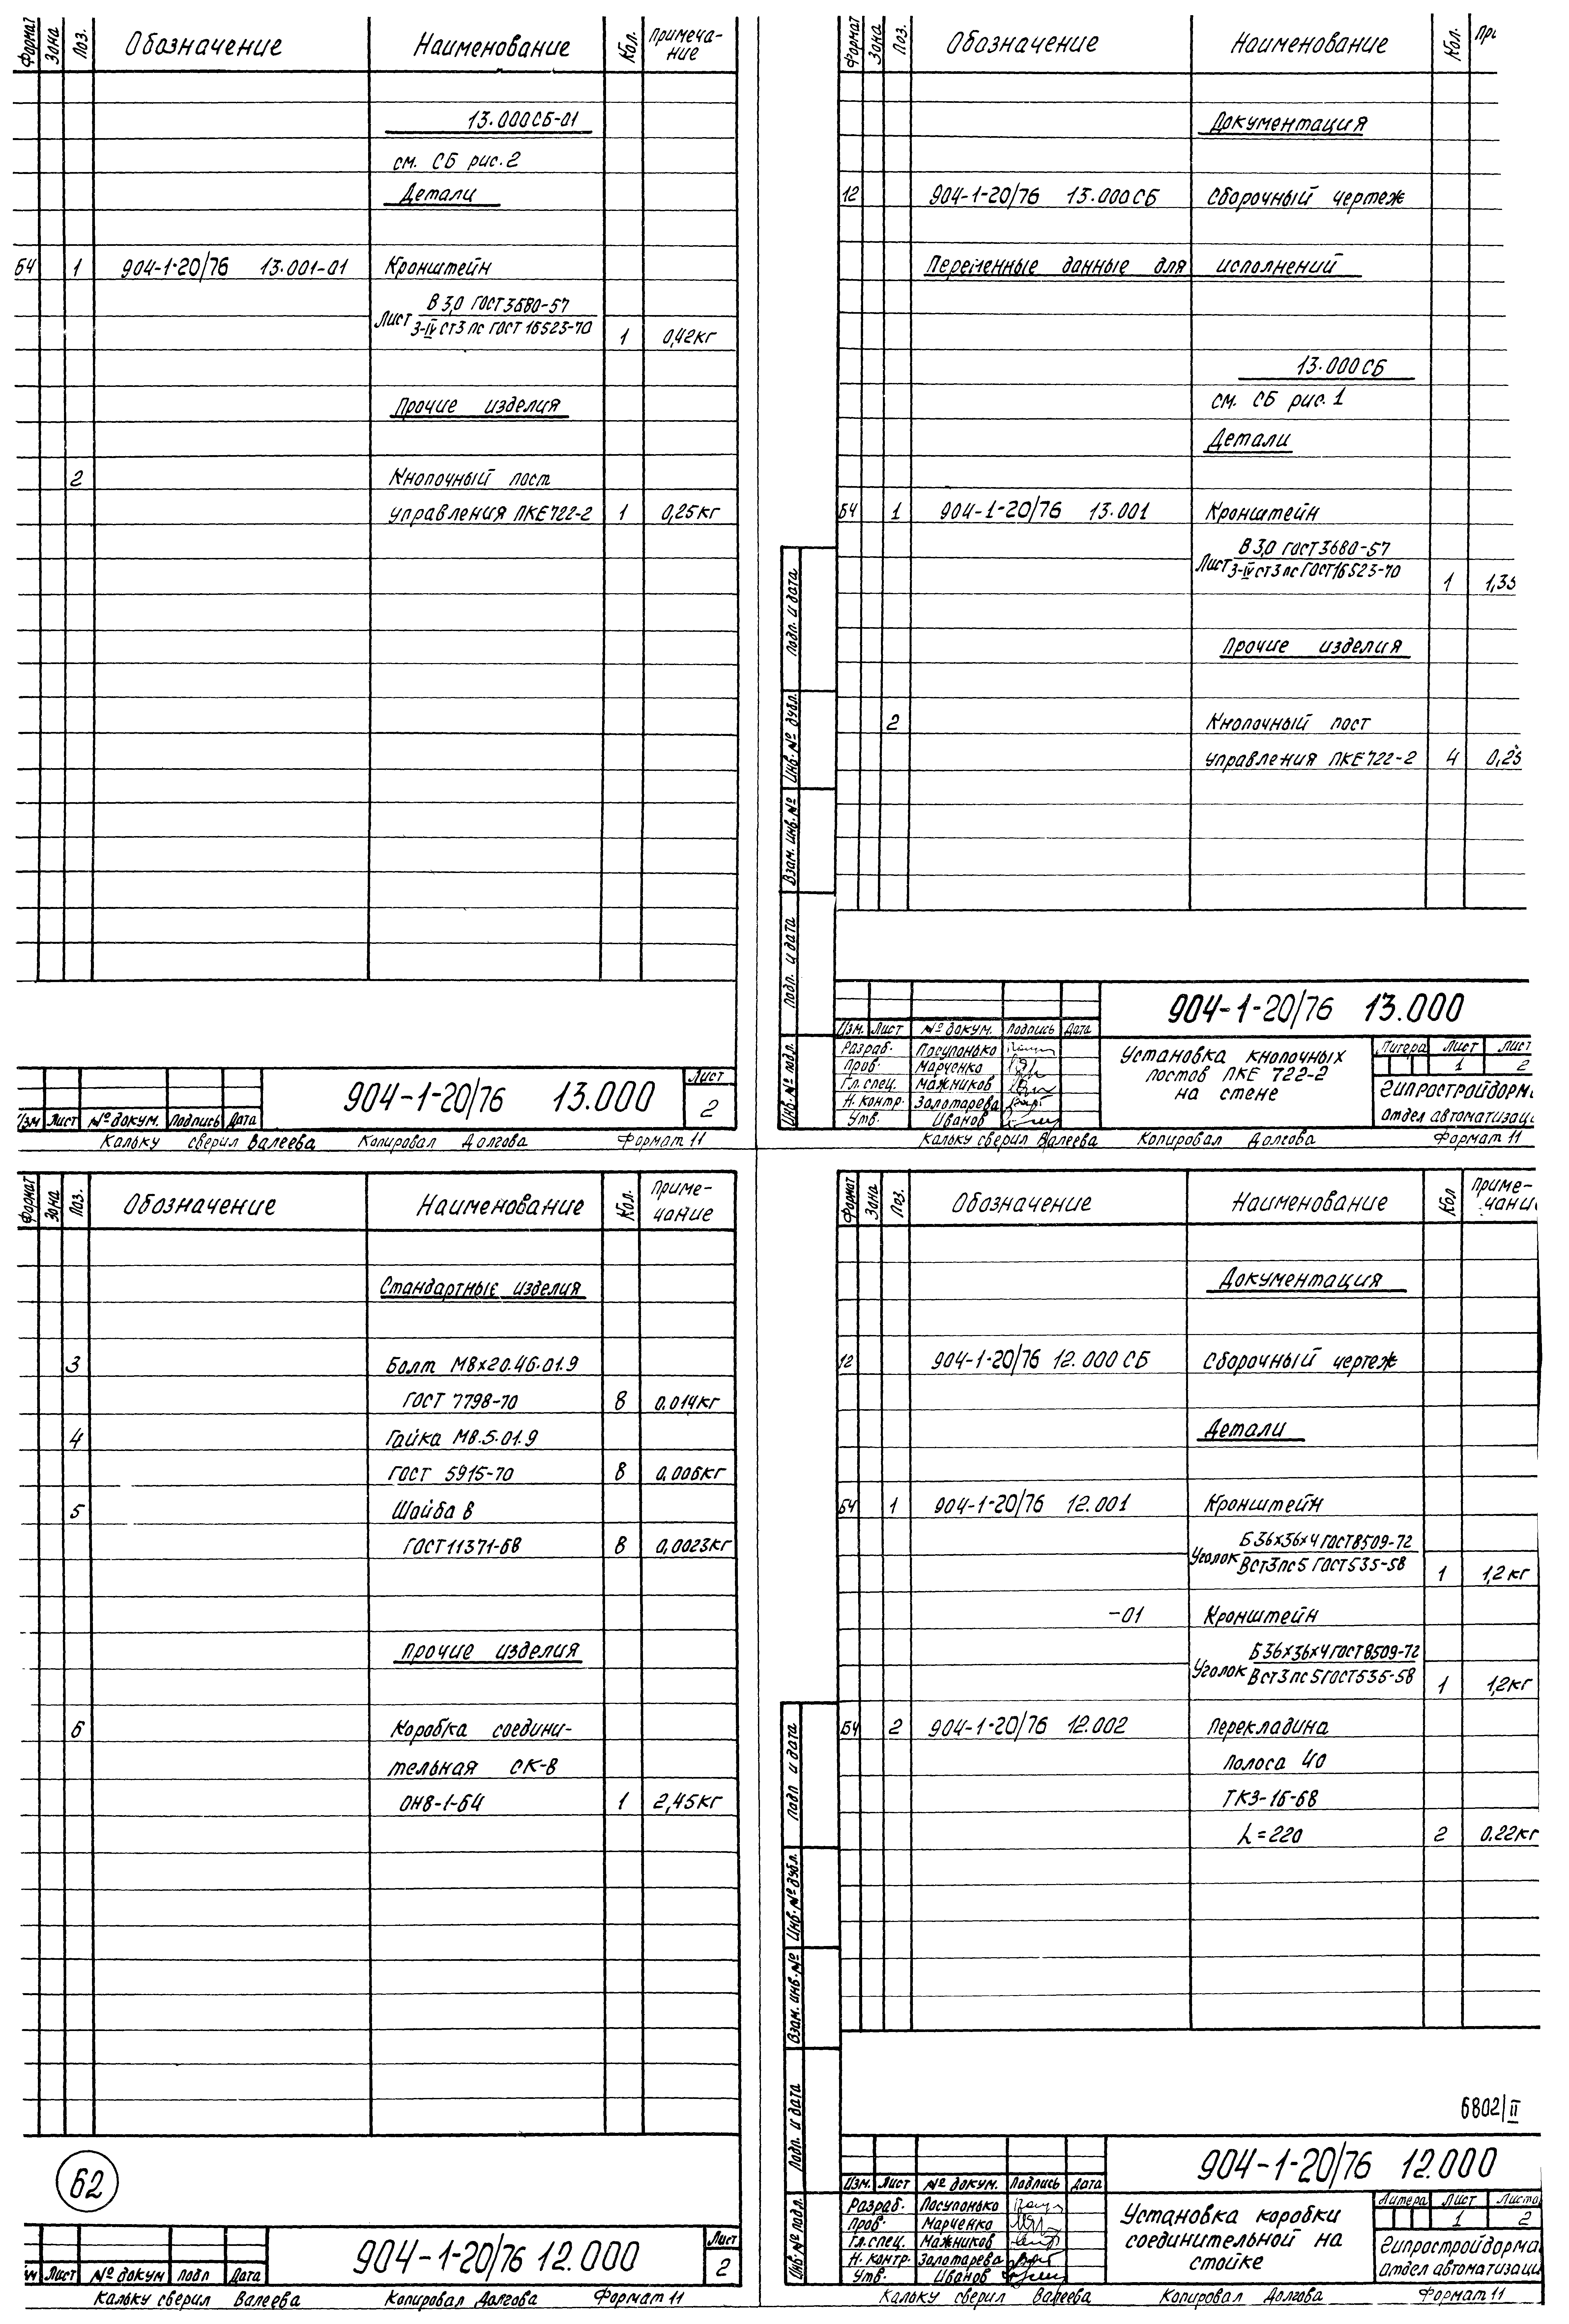 Формат Зона Поз. Обозначение Наименование Кол. Примеча-
ние
13.000СБ-01
см. СБ рис. 2
Детали
Б4 1 904-1-20/76 13.001-01 Кронштейн
В 3,0 ГОСТ 3680-57
Лист
3-IV ст3 пс ГОСТ 16523-70
1 0,42кг
Прочие изделия
2 Кнопочный пост
управления ПКЕ 722-2 1 0,25кг
904-1-20/76 13.000
Лист
2
Изм Лист № докум. Подпись Дата
Кальку сверил Валеева Копировал Долгова Формат 11
Формат Зона Поз. Обозначение Наименование Кол. При
Документация
12 904-1-20/76 13.000СБ Сборочный чертеж
Переменные данные для исполнений
13.000СБ
см. СБ рис. 1
Детали
Б4 1 904-1-20/76 13.001 Кронштейн
В 3,0 ГОСТ 3680-57
Лист
3-IV ст3 пс ГОСТ 16523-70
1 1,35
Прочие изделия
2 Кнопочный пост
управления ПКЕ 722-2 4 0,25
Подп. и дата
Инв. № дубл.
Взам. инв. №
Подп. и дата
Инв. № подл.
904-1-20/76 13.000
Изм. Лист № докум. Подпись Дата
Разраб. Посупонько
Пров. Марченко
Гл. спец. Мажников
Н. контр. Золотарева
Утв. Иванов
Установка кнопочных
постов ПКЕ 722-2
на стене
Литера Лист Лист
1 2
Гипростройдорм
Отдел автоматизац
Кальку сверил Валеева Копировал Долгова Формат 11
Формат Зона Поз. Обозначение Наименование Кол. Приме-
чание
Стандартные изделия
3 Болт М8х20.46.01.9
ГОСТ 7798-70 8 0.014кг
4 Гайка М8.5.01.9
ГОСТ 5915-70 8 0,006кг
5 Шайба 8
ГОСТ 11371-68 8 0,0023кг
Прочие изделия
6 Коробка соедини-
тельная СК-8
ОН8-1-64 1 2,45кг
62
904-1-20/76 12.000
Лист
2
Лист № докум подп Дата
Кальку сверил Валеева Копировал Долгова Формат 11
Формат Зона Поз. Обозначение Наименование Кол Приме-
чани
Документация
12 904-1-20/76 12.000 СБ Сборочный чертеж
Детали
Б4 1 904-1-20/76 12.001 Кронштейн
Б 36х36х4 ГОСТ 8509-72
Уголок
Вст3пс5 ГОСТ 535-58
1 1,2кг
-01 Кронштейн
Б 36х36х4 ГОСТ 8509-72
Уголок
Вст3пс5 ГОСТ 535-58
1 1,2кг
Б4 2 904-1-20/76 12.002 Перекладина
Полоса 40
ТК3-16-68
L=220 2 0.22кг
Подп и дата
Инв. № дубл.
Взам. инв. №
Подп. и дата
Инв. № подл.
6802/II
904-1-20/76 12.000
Изм. Лист № докум. Подпись Дата
Разраб. Посупонько
Пров. Марченко
Гл. спец. Мажников
Н. контр. Золотарева
Утв. Иванов
Установка коробки
соединительной на
стойке
Литера Лист Листо
1 2
Гипростройдорма
Отдел автоматизаци
Кальку сверил Валеева Копировал Долгова Формат 11